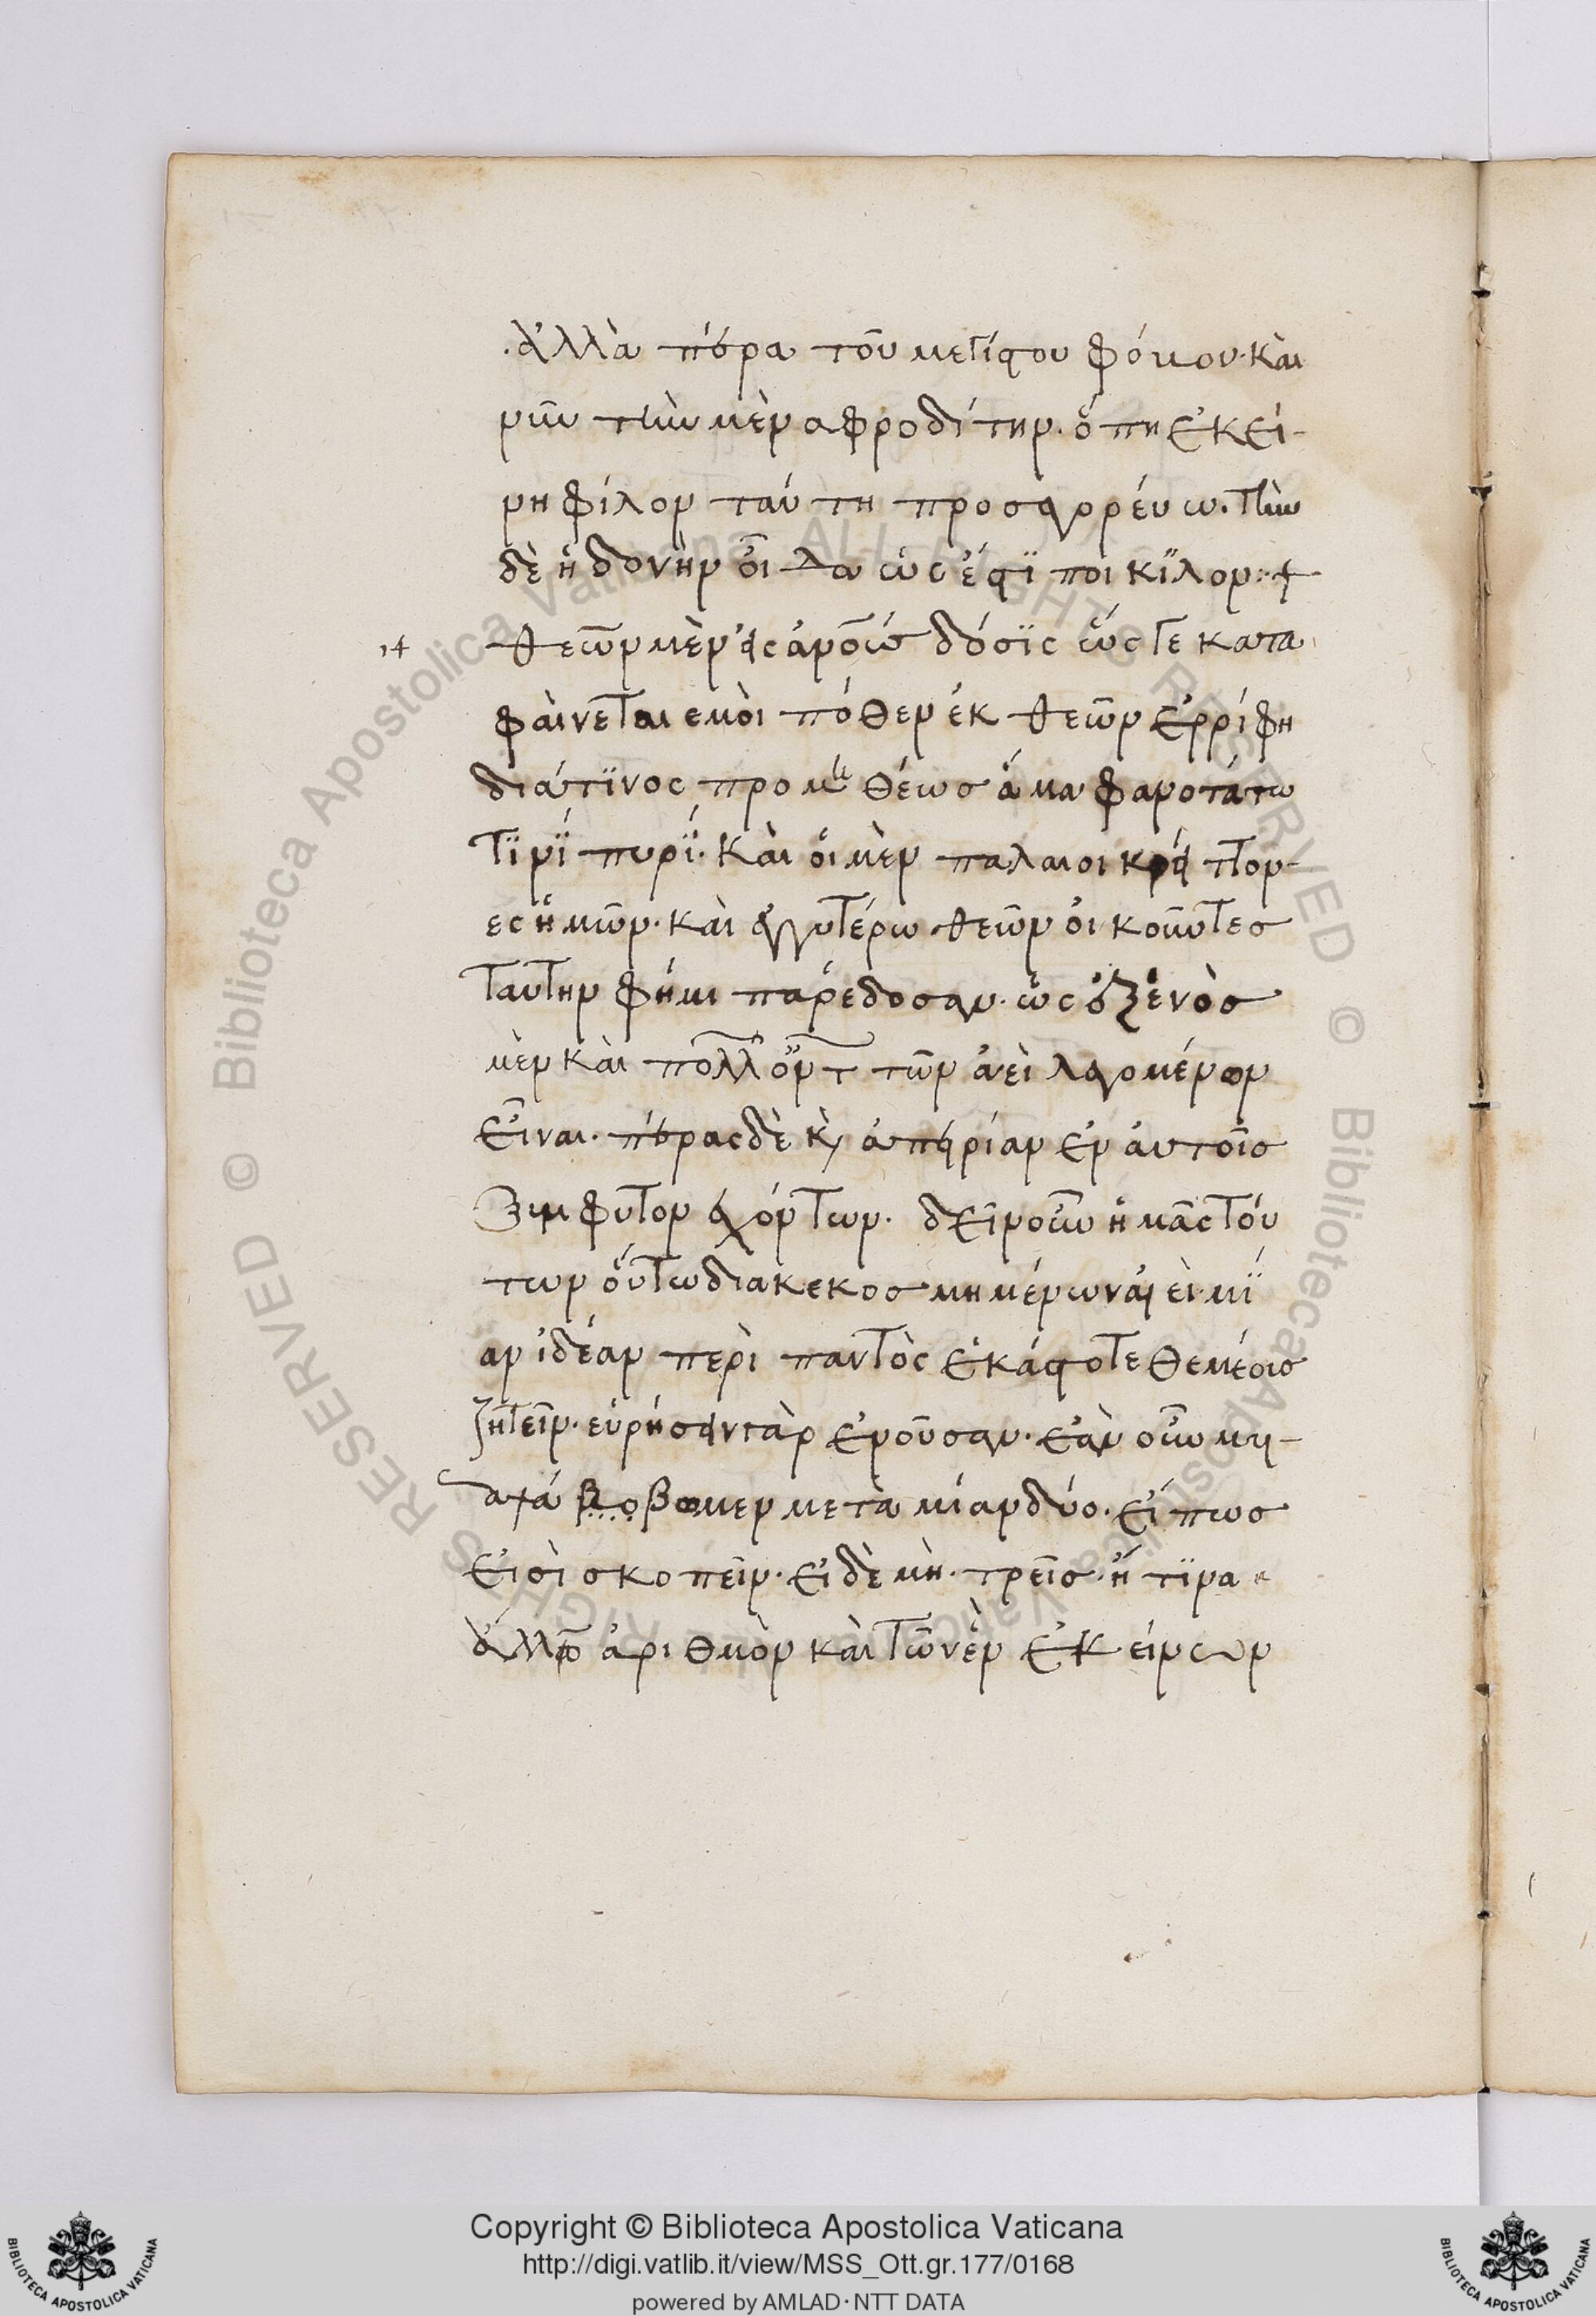 .ἀλλὰ πέρα τοῦ μεγίστου φόβου· καὶ
νῦν τὴν μὲν αφροδίτην. ὅπη ἐκεί-
νη φίλον ταύτη προσαγορέυω. τὴν
δὲ ἡδονὴν οἶδα ὡς ἐστϊ ποικΐλον:+
14 θεῶν μὲν εἰς ἀνοὺσ δόσϊς ὥς γε κατα
φαίνεται εμοὶ πόθεν ἐκ θεῶν ἐρρίφη
διάτϊνος προμηθέωσ ἅμα φανοτάτω
τϊνΐ πυρΐ. καὶ ὁι μὲν παλαιοι κρείττον-
ες ἡμῶν. καὶ ἐγγυτέρω θεῶν ὀικοῦντεσ
ταύτην φήμι παρέδοσαν. ὡς ὁξενὸσ
μὲν καὶ πολλῶν ὄντ τῶν ἀεὶ λεγομένων
εἶναι. πέρας δὲ κ ἀπειρίαν ἐν ἀυτοῖσ
ξυμφυτον ἐχόντων. δεῖν οὖν ἡμᾶς τού
των ὅυτω διακεκοσμημένων ἀεὶ μΐ
αν ἰδέαν περὶ παντὸς ἑκάστοτε θεμένοισ
ζητεῖν. εὑρήσειν γὰρ ἐνοῦσαν. ἐὰν οὖν μη-
ατά βοβωμεν μετὰ μίαν δύο. εἴ πωσ
εἰσὶ σκοπεῖν. εἰ δὲ μὴ. τρεῖσ. ἤ τϊνα
ἄλλο ἀριθμὸν καὶ τῶν ἓν ἐκείνων
Copyright © Biblioteca Apostolica Vaticana
http://digi.vatlib.it/view/MSS_Ott.gr.177/0168
powered by AMLAD·NTT DATA